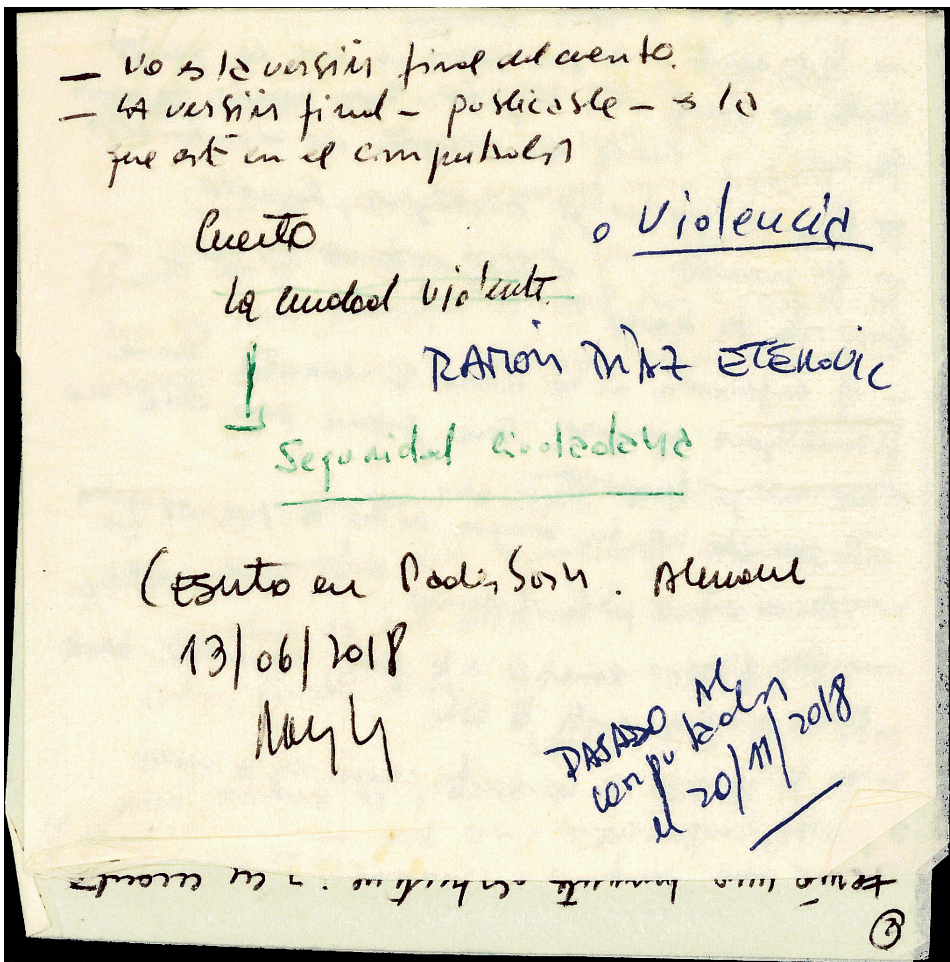 — No es la versión final del cuento.
— La versión final – publicable – es la
que está en el computador
Cuento
o Violencia
La ciudad violenta
RAMÓN DÍAZ ETEROVIC
Seguridad ciudadana
(Escrito en Paderborn. Alemania
13/06/2018
PASADO AL
computador
el 20/11/2018